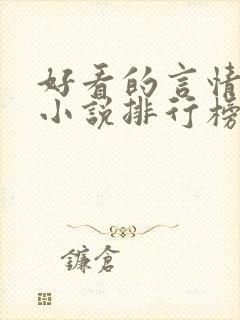 好看的言情
小说排行榜
鐮倉